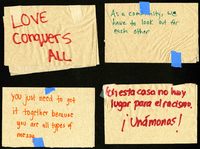 LOVE
Conquers
ALL
As a community, we
have to look out for
each other
You just need to get
it together because
you are all types of
messy
En esta casa no hay
lugar para el racismo.
¡Unámonos!